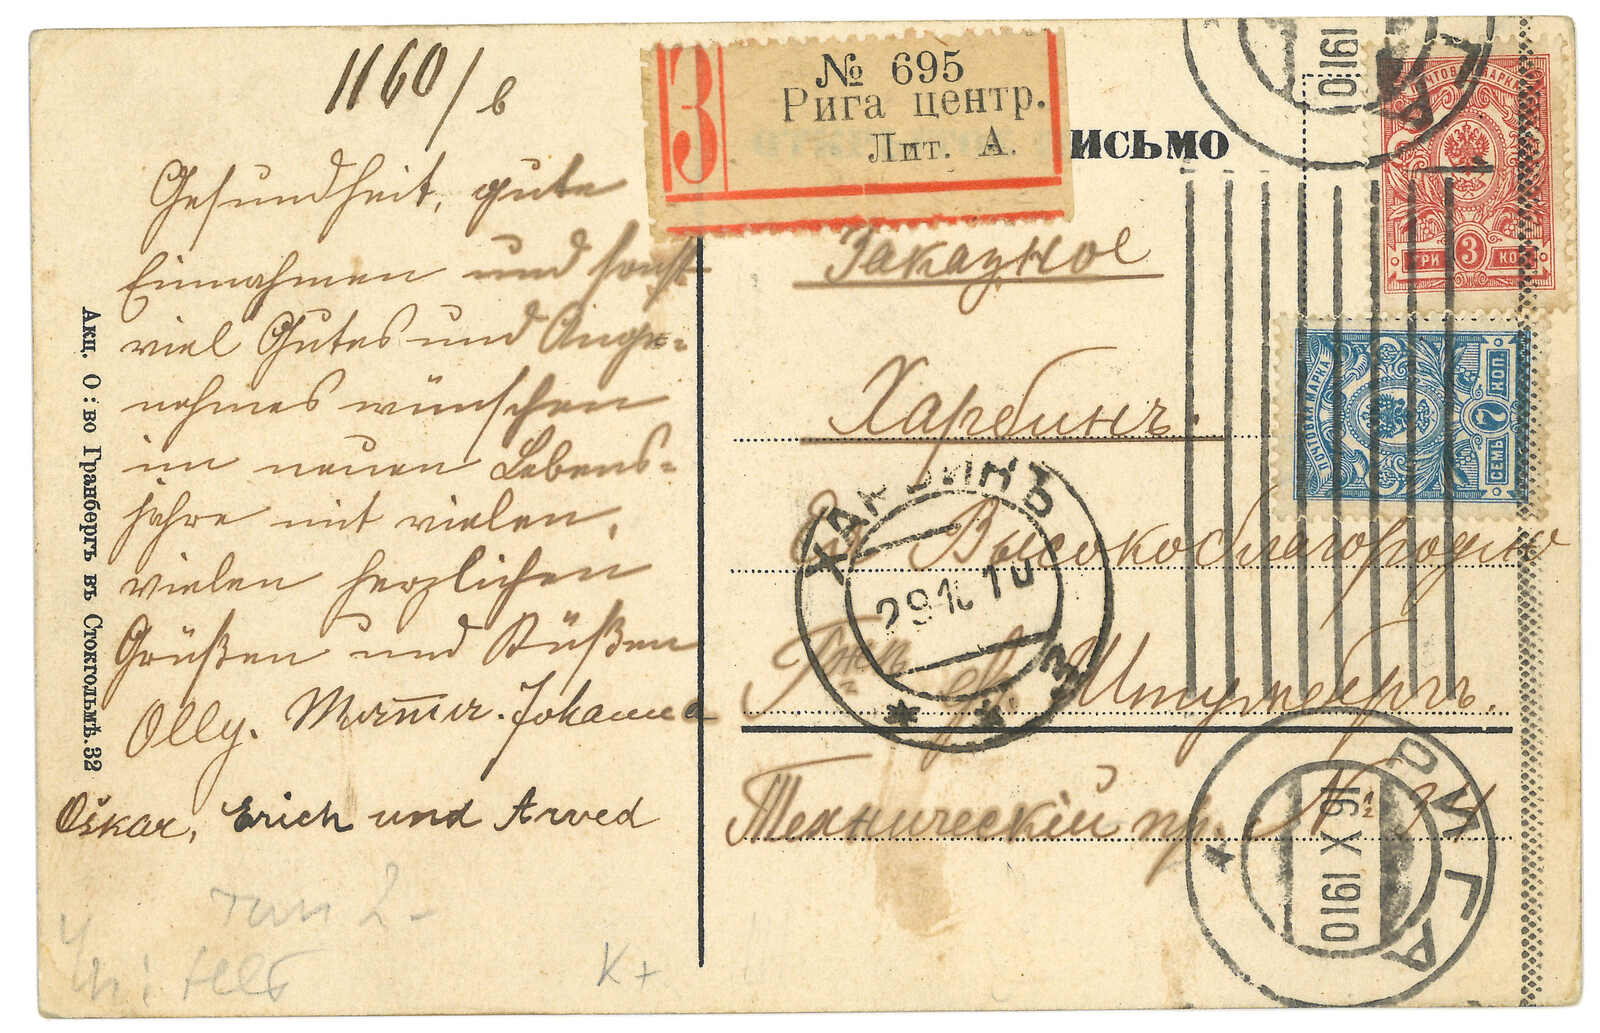 1160/b
Gesundheit, gute
Einnahmen und sonst
viel Gutes und Ange-
nehmes wünschen
im neuen Lebens-
jahre mit vielen,
vielen herzlichen
Grüßen und Küßen
Olly. Werner. Johanna
Oskar, Erich und Arved
Акц. О: во Гранбергъ въ Стокгольмѣ. 32
З
№ 695
Рига центр.
Лит. А.
ИСЬМО
Заказное
Харбинъ.
Высокоблагородію
Штумбергъ.
Техническій пр. № 34
ХАРБИНЪ
29 10 10
РИГА
16 X 1910
1910
ПОЧТОВАЯ МАРКА
ТРИ 3 КОП
ПОЧТОВАЯ МАРКА
СЕМЬ 7 КОП.
K+